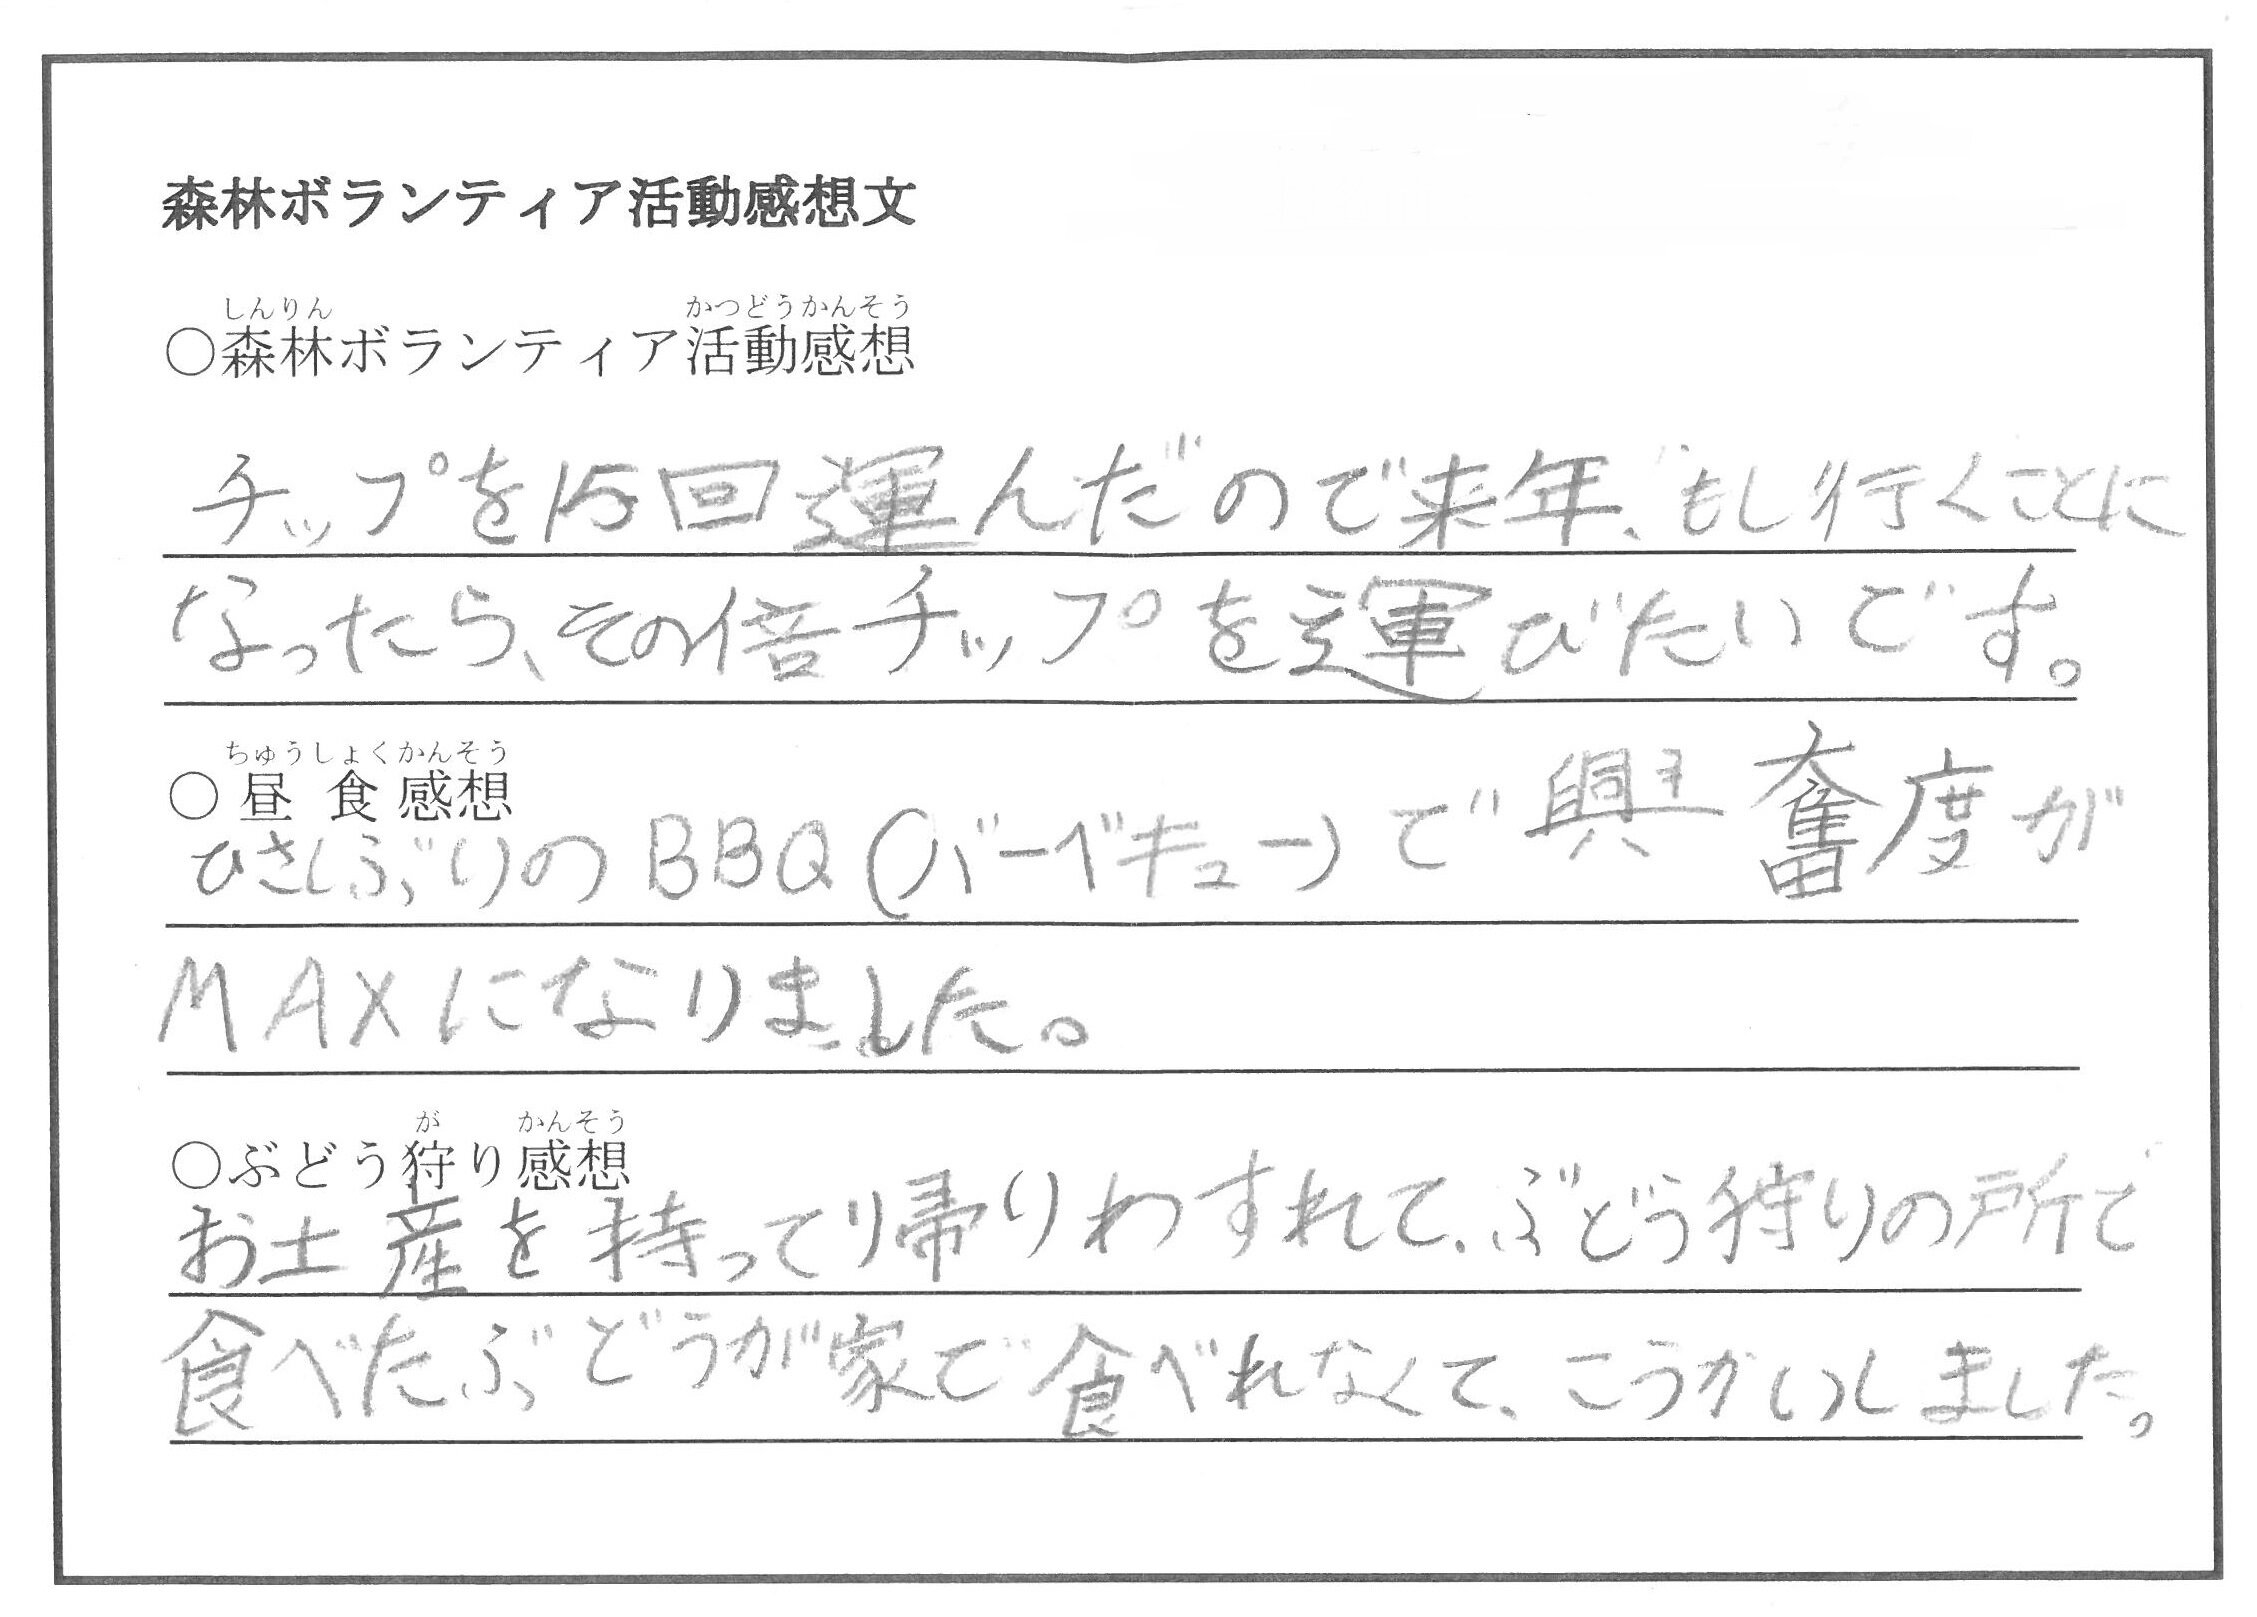 森林ボランティア活動感想文
しんりん かつどうかんそう
○森林ボランティア活動感想
チップを15回運んだので来年、もし行くことに
なったら、その倍チップを運びたいです。
ちゅうしょくかんそう
○昼食感想
ひさしぶりのBBQ(バーベキュー)で興奮度が
MAXになりました。
が かんそう
○ぶどう狩り感想
お土産を持って帰りわすれて、ぶどう狩りの所で
食べたぶどうが家で食べれなくて、こうかいしました。